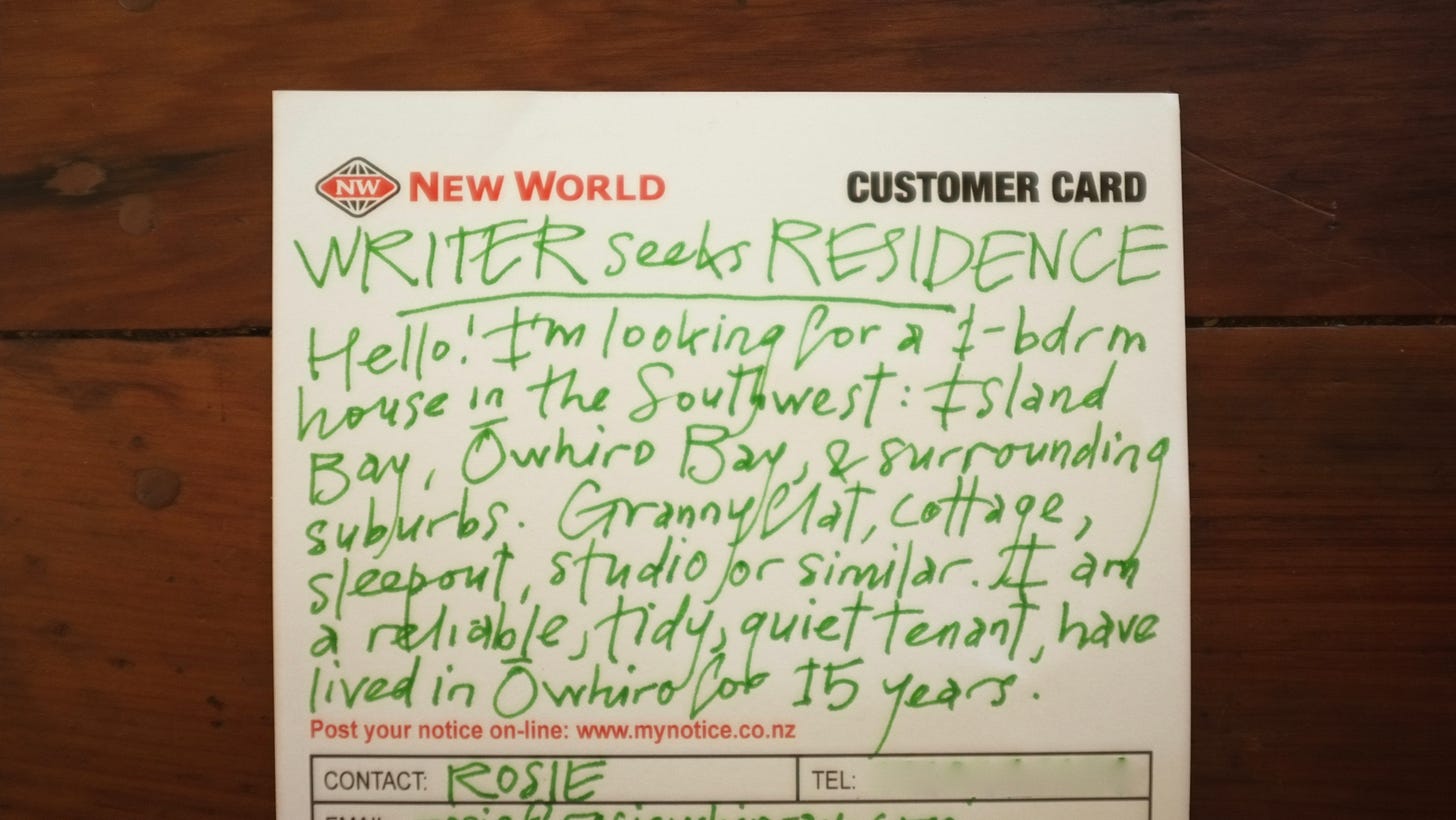 NW NEW WORLD CUSTOMER CARD
WRITER seeks RESIDENCE
Hello! I'm looking for a 1-bdrm
house in the Southwest: Island
Bay, Ōwhiro Bay, & surrounding
suburbs. Granny flat, cottage,
sleepout, studio or similar. I am
a reliable, tidy, quiet tenant, have
lived in Ōwhiro for 15 years.
Post your notice on-line: www.mynotice.co.nz
CONTACT: ROSIE TEL:
EMAIL: